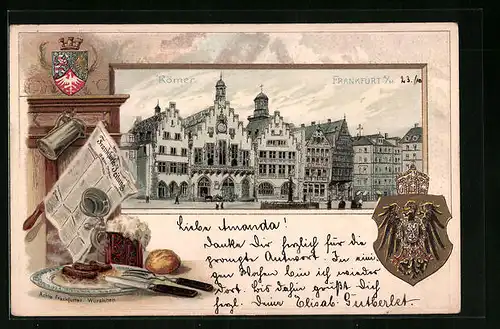 Römer
FRANKFURT a/M
23./10
Frankfurter Zeitung
Liebe Amanda!
Danke Dir herzlich für die
prompte Antwort. In eini-
gen Wochen bin ich wieder
dort. Bis dahin grüßt Dich
herzl. Deine Elisab. Gutberlet.
Frankfurter Würstchen.